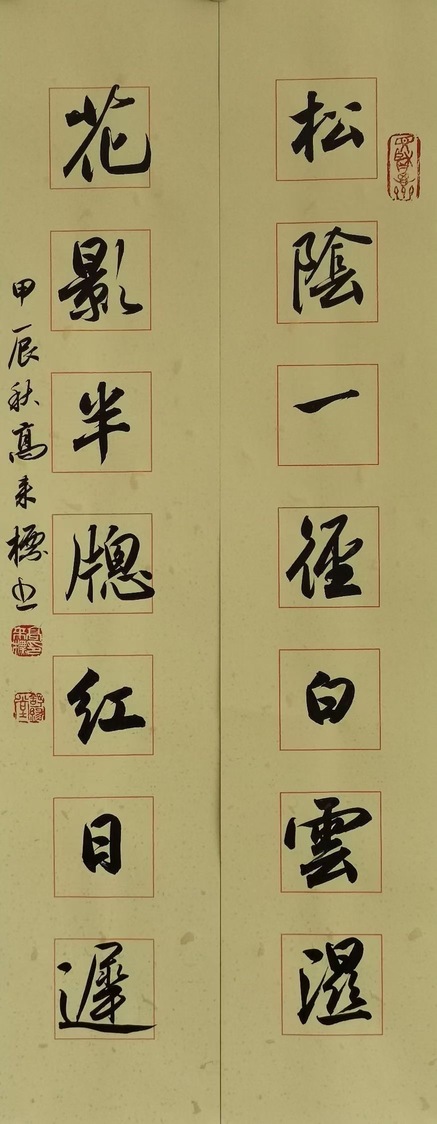 松陰一徑白雲濕
花影半牕紅日遲
甲辰秋高來標书